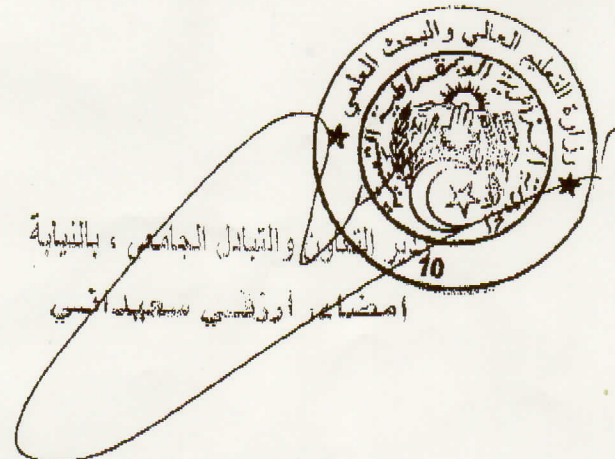 وزارة التعليم العالي والبحث العلمي
الجزائرية الديمقراطية
10
مدير التعاون والتبادل الجامعي ، بالنيابة
امضاء: أرزقي سعيداني